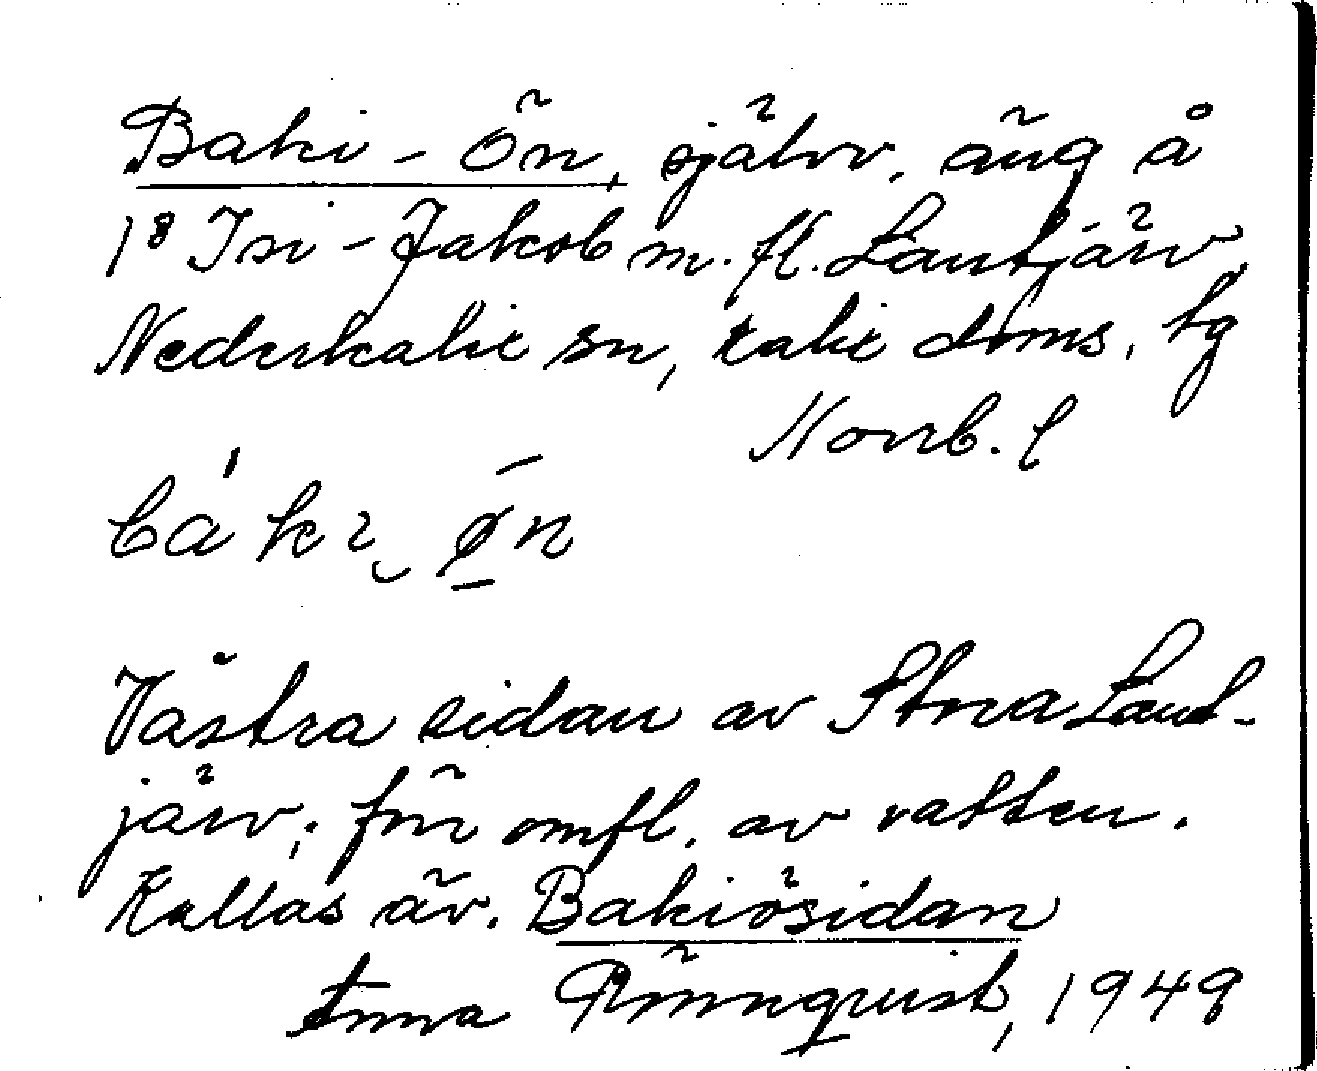 Baki-Ön, självv. äng å
1⁸ Isi-Jakob m. fl. Lautjärv,
Nederkalix sn, Kalix doms. tg
Norrb. l
Västra sidan av Stora Laut-
järv; förr omfl. av vatten.
Kallas äv. Bakiösidan
Anna Rönnquist, 1949